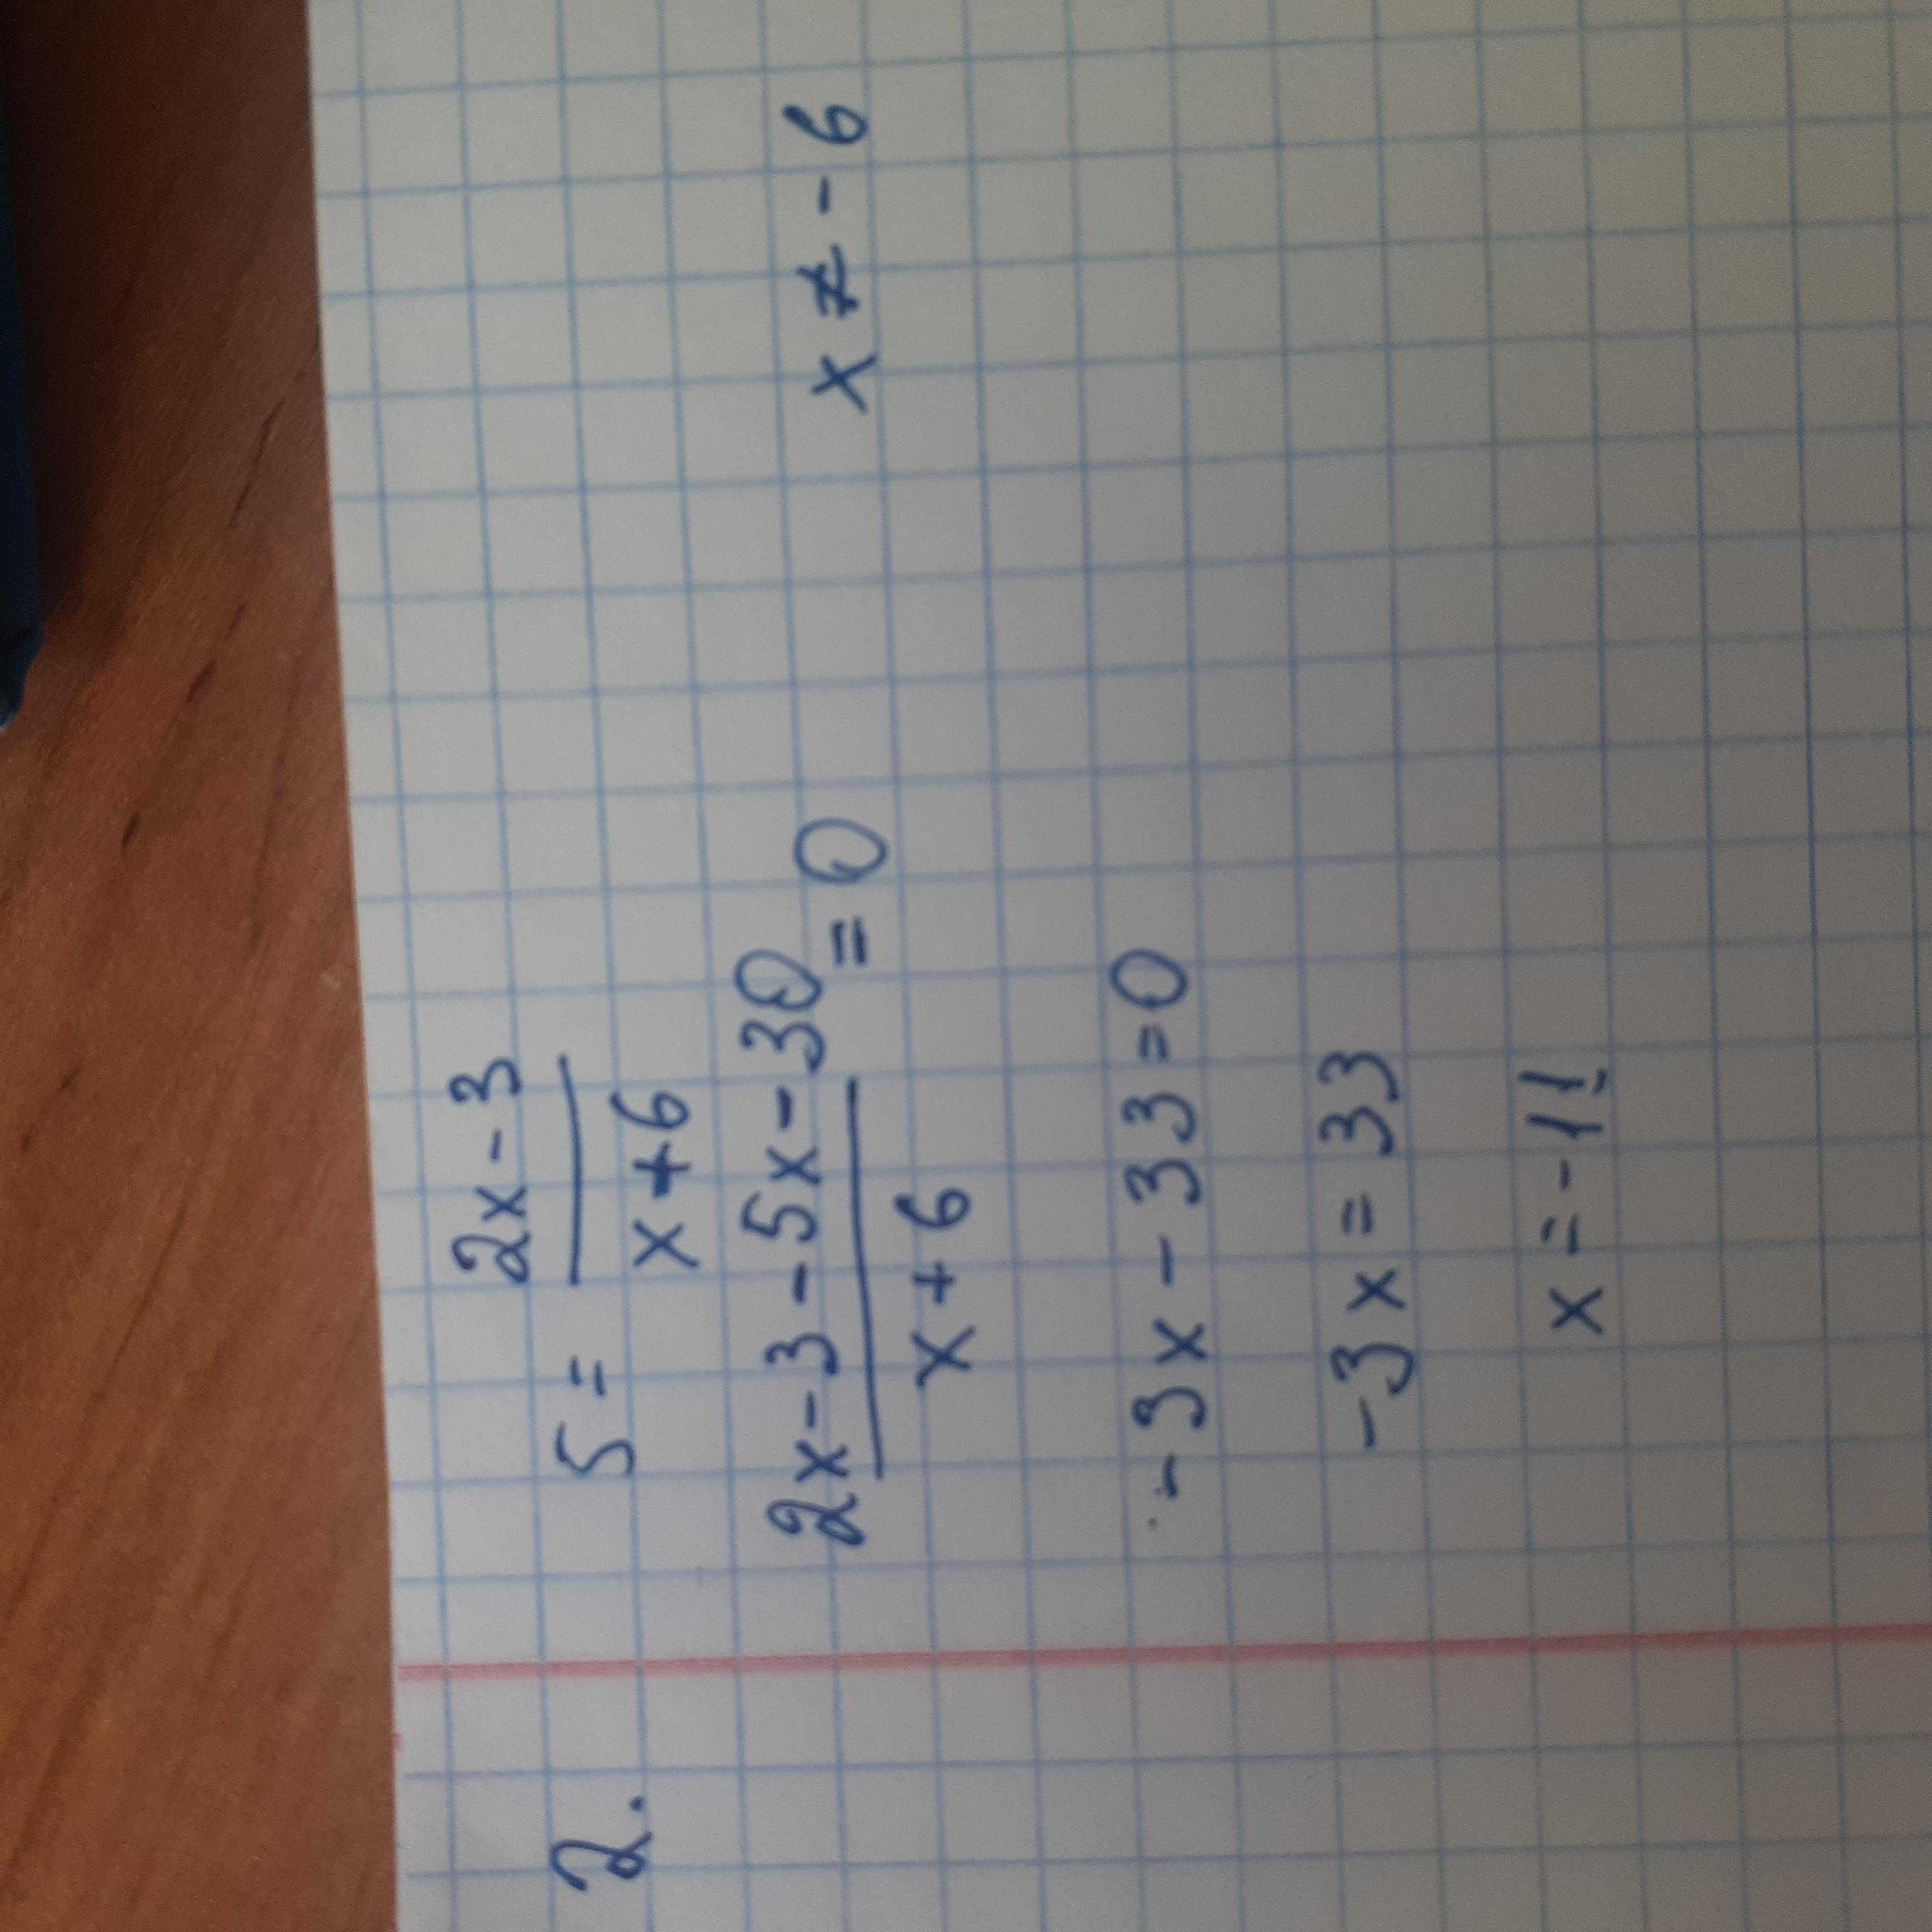 2. 5 = (2x-3)/(x+6)
(2x-3-5x-30)/(x+6) = 0 x ≠ -6
-3x-33=0
-3x=33
x=-11